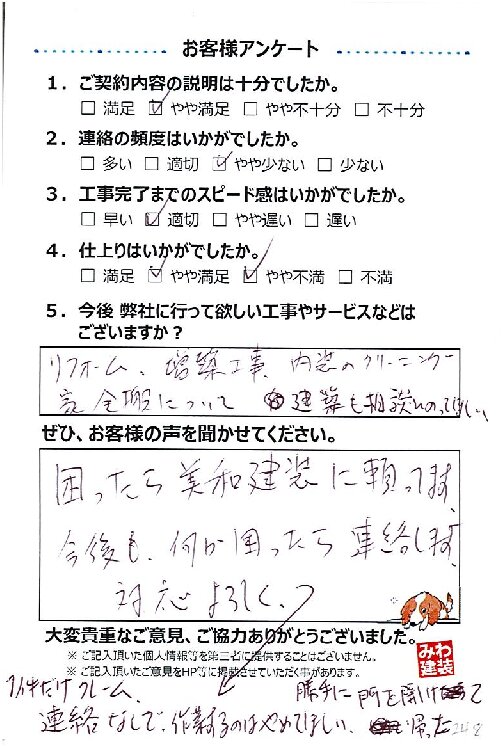 お客様アンケート
1．ご契約内容の説明は十分でしたか。
□ 満足 ☑ やや満足 □ やや不十分 □ 不十分
2．連絡の頻度はいかがでしたか。
□ 多い □ 適切 ☑ やや少ない □ 少ない
3．工事完了までのスピード感はいかがでしたか。
□ 早い ☑ 適切 □ やや遅い □ 遅い
4．仕上りはいかがでしたか。
□ 満足 ☑ やや満足 ☑ やや不満 □ 不満
5．今後 弊社に行って欲しい工事やサービスなどは
ございますか？
リフォーム、増築工事、内装のクリーニング
家全般について 建築も相談のってほしい、
ぜひ、お客様の声を聞かせてください。
困ったら美和建装に頼ってます、
今後も、何か困ったら連絡します、
対応よろしく、
大変貴重なご意見、ご協力ありがとうございました。
※ ご記入頂いた個人情報等を第三者に提供することはございません。
※ ご記入頂いたご意見をHP等に掲載させていただく事があります。
みわ
建装
1件だけクレーム、 勝手に門を開けて
連絡なしで、作業するのはやめてほしい、 帰った